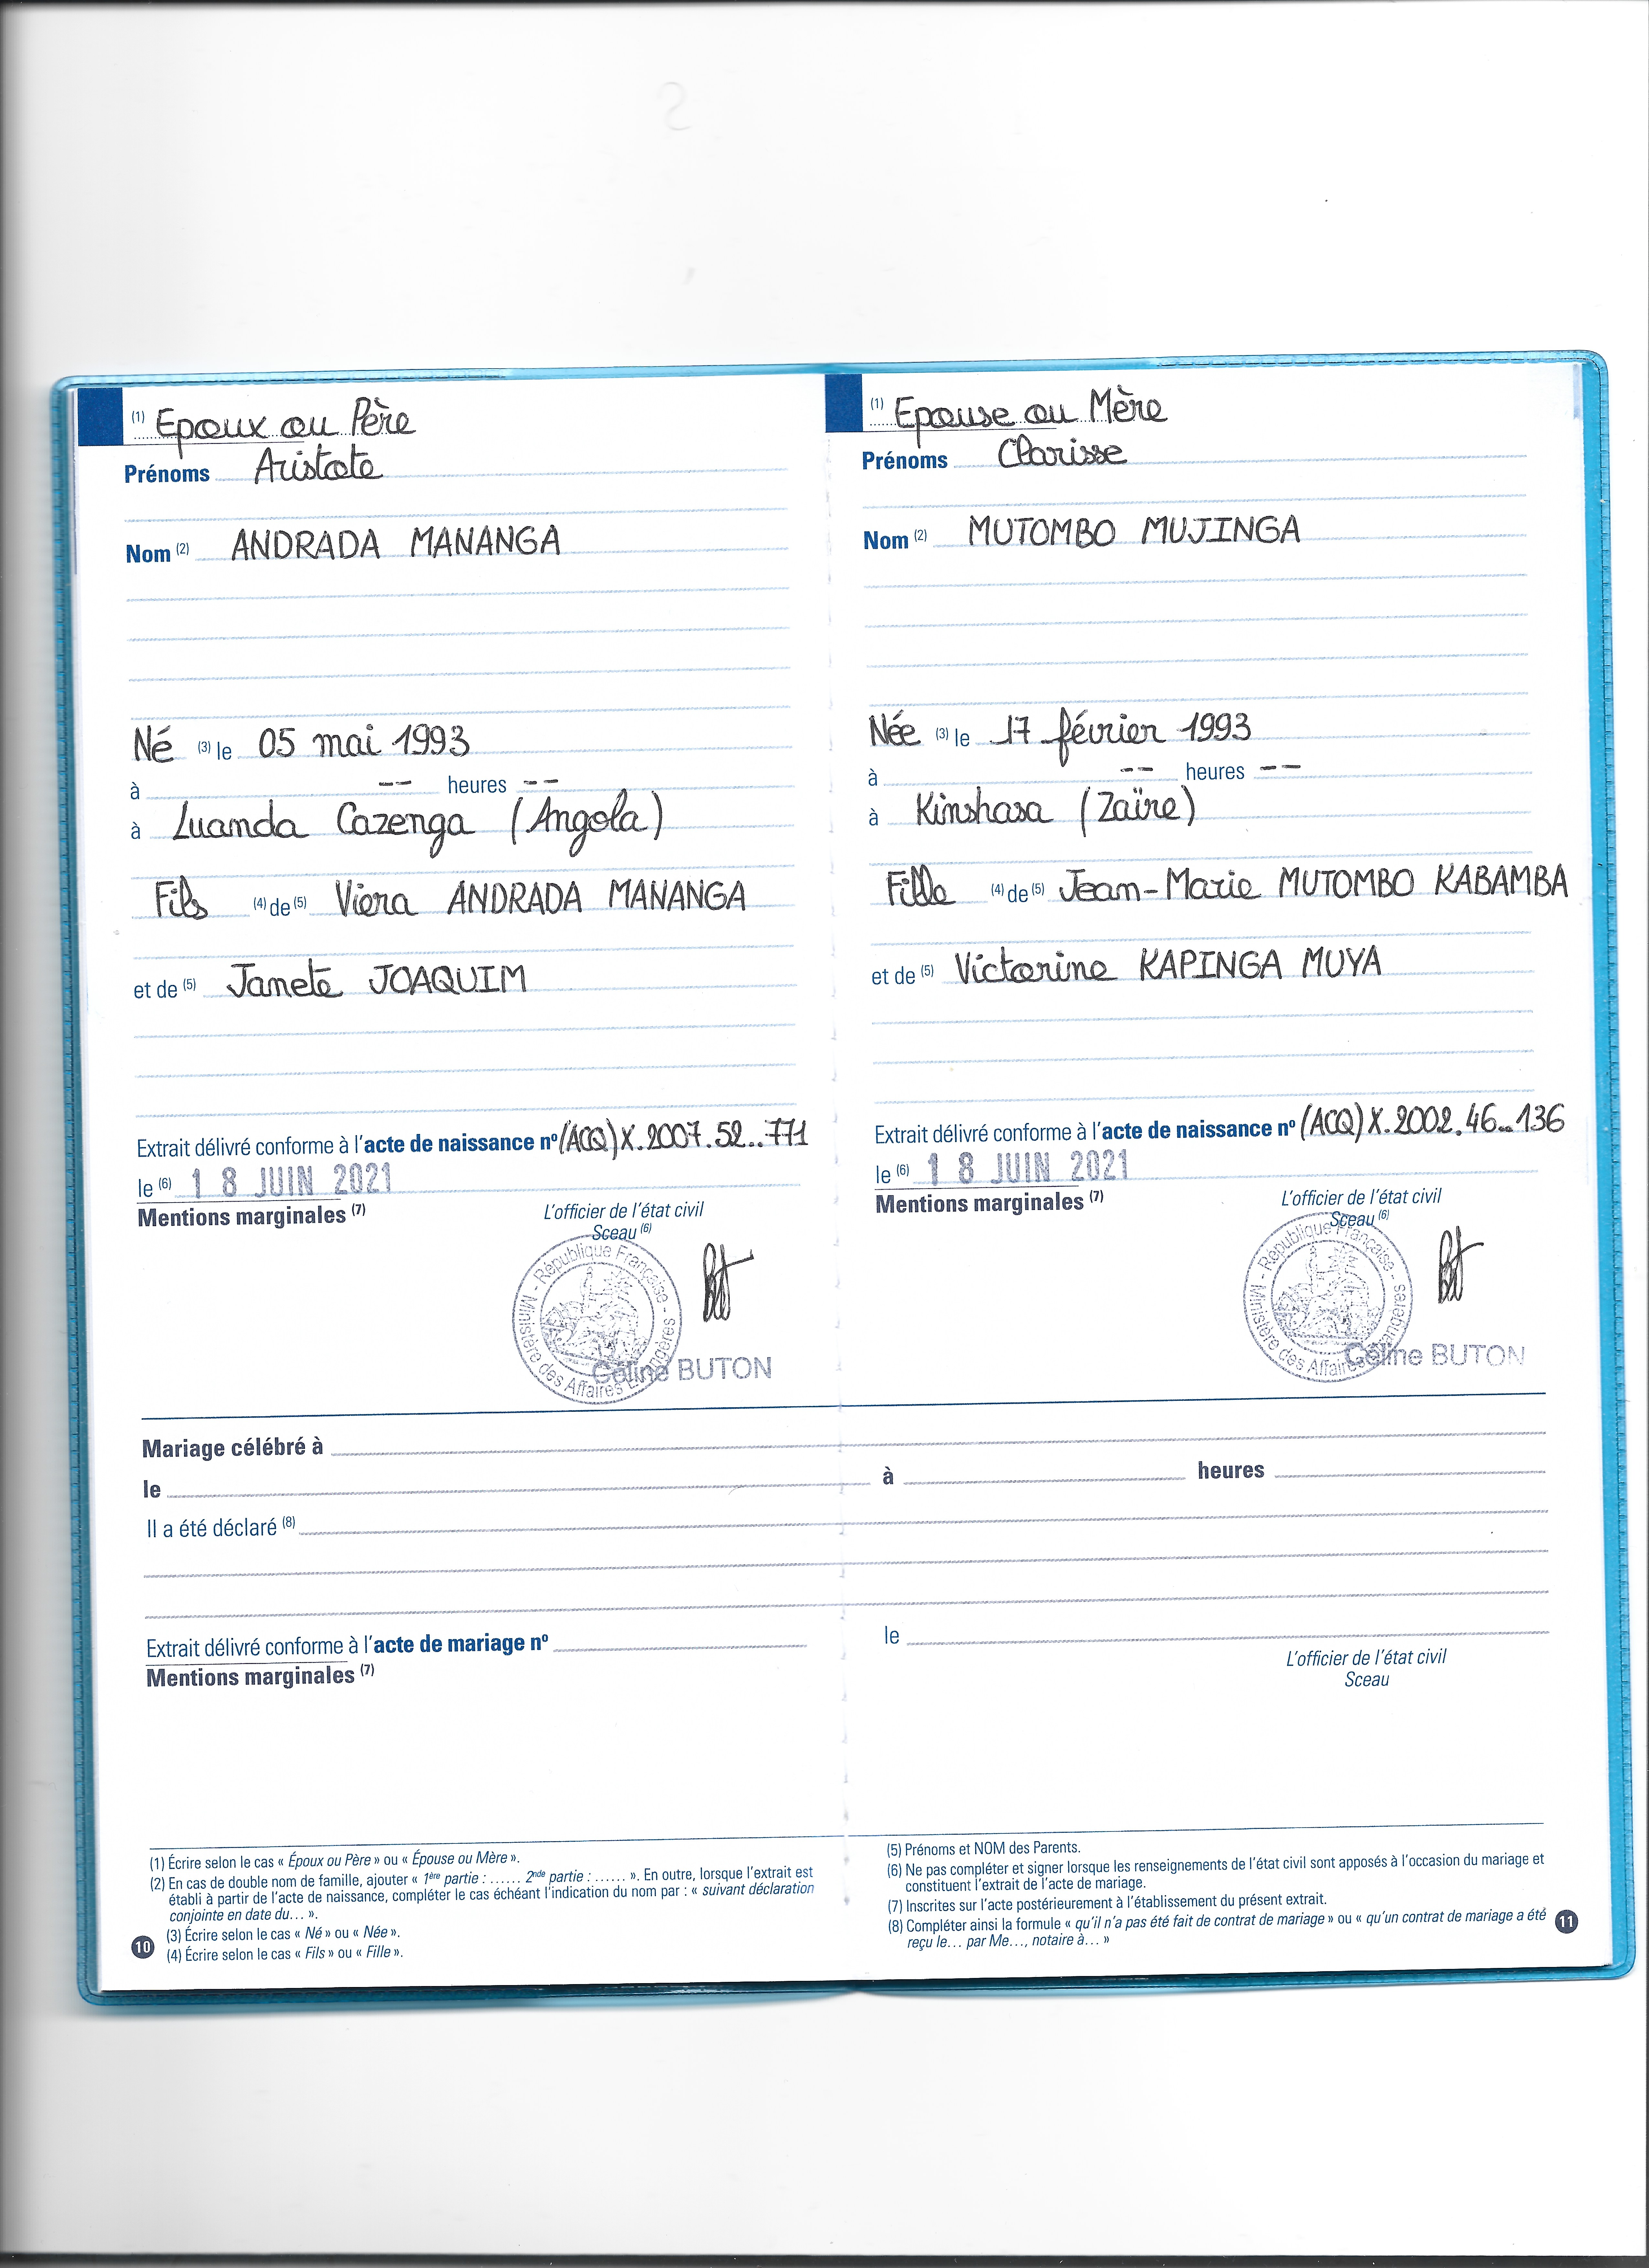 (1) Epoux ou Père
Prénoms Aristote
Nom (2) ANDRADA MANANGA
Né (3) le 05 mai 1993
à -- heures --
à Luanda Cazenga (Angola)
Fils (4) de (5) Viera ANDRADA MANANGA
et de (5) Janete JOAQUIM
Extrait délivré conforme à l'acte de naissance nº (ACQ) X.2007.52..771
le (6) 18 JUIN 2021
Mentions marginales (7)
L'officier de l'état civil
Sceau (6)
République Française - Ministère des Affaires Etrangères -
Céline BUTON
(1) Epouse ou Mère
Prénoms Clarisse
Nom (2) MUTOMBO MUJINGA
Née (3) le 17 février 1993
à -- heures --
à Kinshasa (Zaïre)
Fille (4) de (5) Jean-Marie MUTOMBO KABAMBA
et de (5) Victorine KAPINGA MUYA
Extrait délivré conforme à l'acte de naissance nº (ACQ) X.2002.46..136
le (6) 18 JUIN 2021
Mentions marginales (7)
L'officier de l'état civil
Sceau (6)
République Française - Ministère des Affaires Etrangères -
Céline BUTON
Mariage célébré à
le à heures
Il a été déclaré (8)
Extrait délivré conforme à l'acte de mariage nº le
Mentions marginales (7)
L'officier de l'état civil
Sceau
(1) Écrire selon le cas « Époux ou Père » ou « Épouse ou Mère ».
(2) En cas de double nom de famille, ajouter « 1ère partie : ...... 2nde partie : ...... ». En outre, lorsque l'extrait est
établi à partir de l'acte de naissance, compléter le cas échéant l'indication du nom par : « suivant déclaration
conjointe en date du... ».
(3) Écrire selon le cas « Né » ou « Née ».
(4) Écrire selon le cas « Fils » ou « Fille ».
10
(5) Prénoms et NOM des Parents.
(6) Ne pas compléter et signer lorsque les renseignements de l'état civil sont apposés à l'occasion du mariage et
constituent l'extrait de l'acte de mariage.
(7) Inscrites sur l'acte postérieurement à l'établissement du présent extrait.
(8) Compléter ainsi la formule « qu'il n'a pas été fait de contrat de mariage » ou « qu'un contrat de mariage a été
reçu le... par Me..., notaire à... »
11